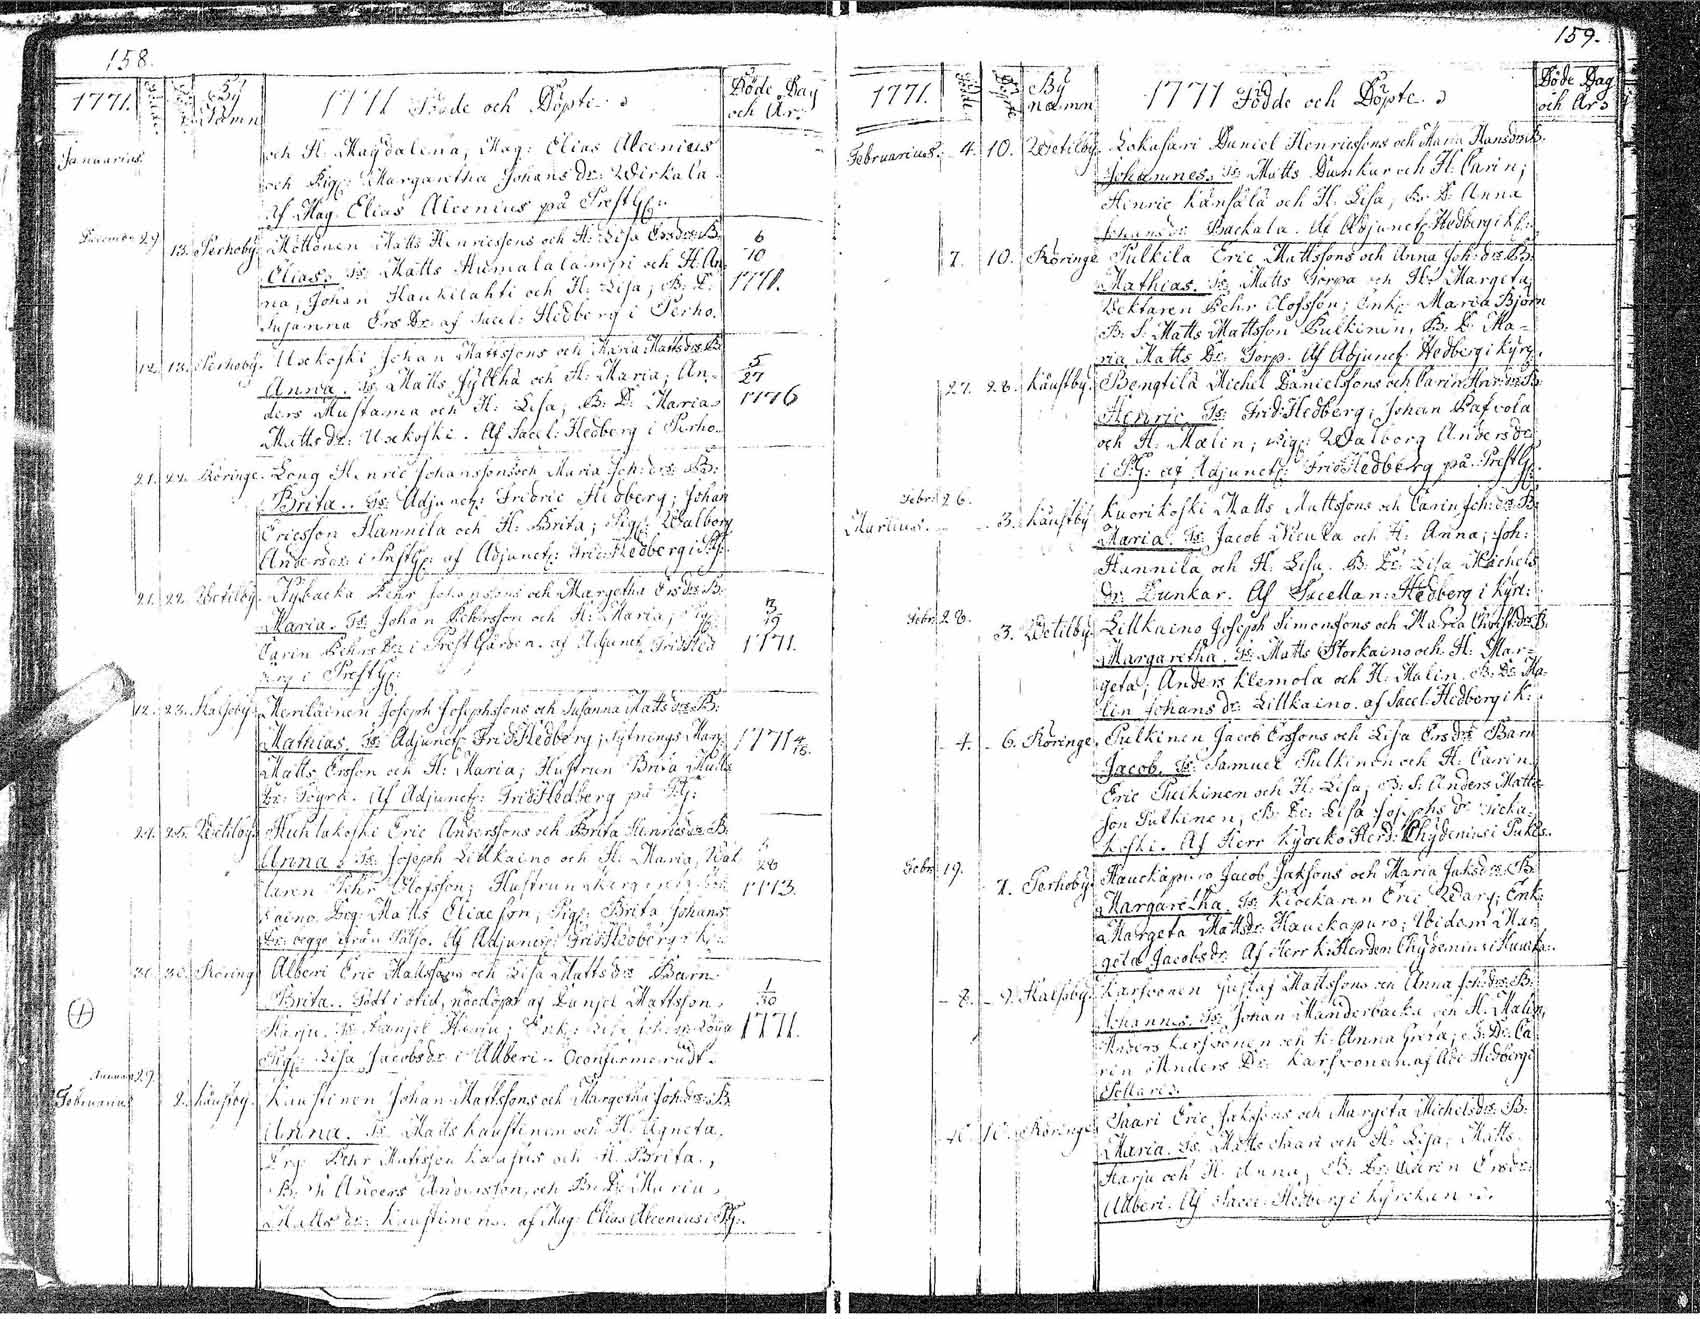 158.
1771. Födde Döpte By Namn 1771 Födde och Döpte. Döde Dag och År.
Januarius. och H. Magdalena; Mag: Elias Alcenius
och Pig: Margaretha Johans Dr: Wirkala.
Af Mag. Elias Alcenius på PrestG:
December 29. 13. Perhoby. Möttönen Matts Henricssons och H: Lisa Ersdrs B. 6
Elias. Ts: Matts Humalalamпi och H. An- 10
na; Johan Haukilahti och H: Lisa; B. D: 1771.
Susanna Ers Dr. af Sacel: Hedberg i Perho.
12. 13. Perhoby. Uusikoski Johan Mattssons och Maria Mattsdrs B. 5
Anna. Ts: Matts Jyllhä och H: Maria; An- 27
ders Mustama och H: Lisa; B: D: Maria 1776
Matts dr: Usekoski. Af Sacel: Hedberg i Perho.
21. 22. Röringe. Long Henric Johanssons och Maria Joh: drs B:
Brita. Ts: Adjunct: Fridric Hedberg; Johan
Ericsson Hannila och H: Brita; Pig: Walborg
Anders dr i PrestG: af Adjunct: Frid: Hedberg i PG.
21. 22. Wetilby. Nybacka Pehr Johanssons och Margetha Ersdrs B.
Maria. Ts: Johan Pehrsson och H: Maria; Pig: 3 19
Carin Pehrs Dr: i PrestGården. af Adjunct Frid: Hed 1771.
berg i PrestG:
12. 23. Halsoby. Meriläinen Joseph Josephssons och Susanna Matts drs B:
Mathias. Ts: Adjunct: Frid: Hedberg; Sytnings Man 1771 4
Matts Ersson och H: Maria; Hustrun Brita Matts
Dr: Togra. Af Adjunct: Frid: Hedberg på PG:
24. 25. Wetilby. Huhtakoski Eric Anderssons och Brita Henricsdrs B.
Anna. Ts: Joseph Lillkaino och H: Maria, Wäk
taren Pehr Olofsson; Hustrun 1773.
kaino. Drg: Matts Eliaeson; Pig: Brita Johans
Dr: begge ifrån Saljo. Af Adjunct: Frid: Hedberg i K:
30. 30. Röringe Alberi Eric Mattssons och Lisa Matts drs Barn 1
Brita. Född i otid, nöddöpt af Danjel Mattsson 30
Harju. Ts: Danjel Harju; Enk: 1771.
Pig: Lisa Jacobsdr i Alberi. Oconfirmeradt.
Januari 29.
Februarius 2. Käustby. Kaustinen Johan Mattssons och Margetha Joh: drs B.
Anna. Ts: Matts Kaustinen och H: Agneta,
Drg: Pehr Mattsson Kaustis och H. Brita,
B: S: Anders Andersson, och B: D: Maria
Matts dr: Kaustinen. af Mag: Elias Alcenius i PG.
159.
1771. Födde Döpte By namn 1771 Födde och Döpte. Döde Dag och År
Februarius. 4. 10. Wetilby. Lokasari Daniel Henricssons och Maria Hansdrs B.
Johannes. Ts: Matts Dunkar och H: Carin;
Hinric Känsälä och H: Lisa; B: D: Anna
Johans dr Backala. Af Adjunct: Hedberg i K:
7. 10. Röringe Pulkila Eric Mattssons och Anna Joh: drs B:
Mathias. Ts: Matts Torpa och H: Margeta;
Wektaren Pehr Olofsson; Enk: Maria Björn
B: S. Matts Mattsson Pulkinen, B: D: Ma-
ria Matts Dr: Torp. Af Adjunct: Hedberg i Kyrk.
27. 28. Käustby. Bengtila Michel Danielssons och Carin Hnr: drs B:
Henric. Ts: Frid: Hedberg; Johan Pasvola
och H: Malin; Pig: Walborg Andersdr
i PG: af Adjunct: Frid: Hedberg på PrestG:
Febr: 26.
Martius. 3. Käustby Kuorikoski Matts Mattssons och Carin Joh: drs B:
Maria. Ts: Jacob Wirula och H: Anna; Joh:
Hannila och H: Lisa. B: Dr: Lisa Michels
dr: Dunkar. Af Sacellan: Hedberg i Kyrk:
Febr: 28.
3. Wetilby. Lillkaino Joseph Simonssons och Maria Christ: drs B.
Margaretha. Ts: Matts Storkaino och H: Mar-
geta; Anders Klemola och H: Malin. B: D: Ma-
lin Johans dr: Lillkaino. af Sacel: Hedberg i K:
4. 6. Röringe. Pulkinen Jacob Erssons och Lisa Ers drs Barn
Jacob. Ts: Samuel Pulkinen och H: Carin.
Eric Pulkinen och H: Lisa; B: S: Anders Matts-
son Pulkinen, B: D: Lisa Josephs dr Ticka-
koski. Af Herr Kyrcko Herd: Chydenius i Pulkis.
Febr: 19.
7. Perhoby. Hauckapuro Jacob Jakssons och Maria Jaksdrs B.
Margaretha. Ts: Klockaren Eric Warg; Enk:
Margeta Mattsdr: Hauckapuro; Widem Mar-
geta Jacobs dr. Af Herr K: Herden Chydenius i Haucka:
8. 9. Halsoby. Karsvonen Gustaf Mattssons och Anna Joh: drs B:
Johannes. Ts: Johan Manderbacka och H: Malin,
Anders Karsvonen och H: Anna Greta; B: D: Ca-
rin Anders Dr: Karsvonen. af Adj: Hedberg i
Pellare.
10. 10. Röringe Saari Eric Jakssons och Margeta Michels drs B:
Maria. Ts: Matts Saari och H: Lisa; Matts
Harju och H: Anna; B: D: Carin Ersdr:
Alberi. Af Sacel: Hedberg i Kyrckan.